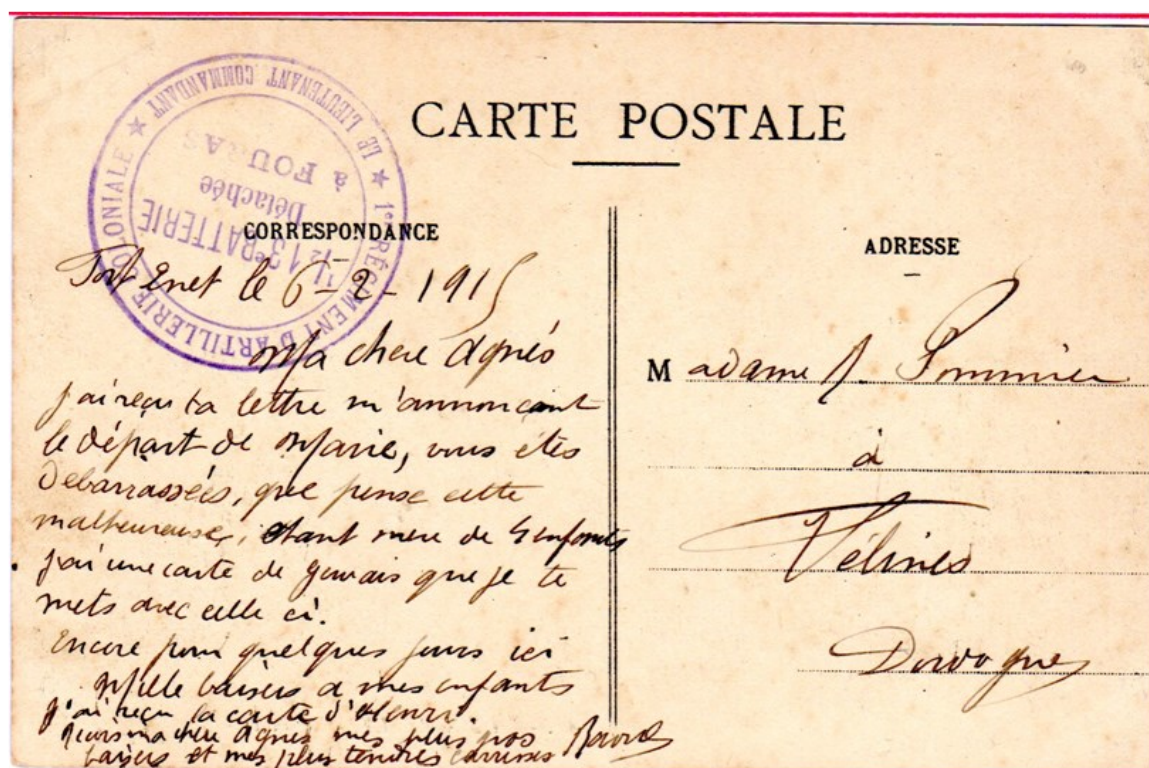 CARTE POSTALE
★ 1er RÉGIMENT D'ARTILLERIE COLONIALE ★ LE LIEUTENANT COMMANDANT
13e BATTERIE
Détachée
à FOURAS
CORRESPONDANCE
Fort Enet le 6-2-1915
Ma chere Agnés
j'ai reçu ta lettre m'annoncant
le départ de Marie, vous étes
Debarrassées, que pense cette
malheureuse, étant mere de 4 enfants
j'ai une carte de que je te
mets avec celle ci.
Encore pour quelques jours ici
Mille baisers a mes enfants
j'ai reçu la carte d'Henri.
ma chere Agnes mes plus gros
baisers et mes plus tendres caresses
ADRESSE
Madame
à
Vélines
Dordogne